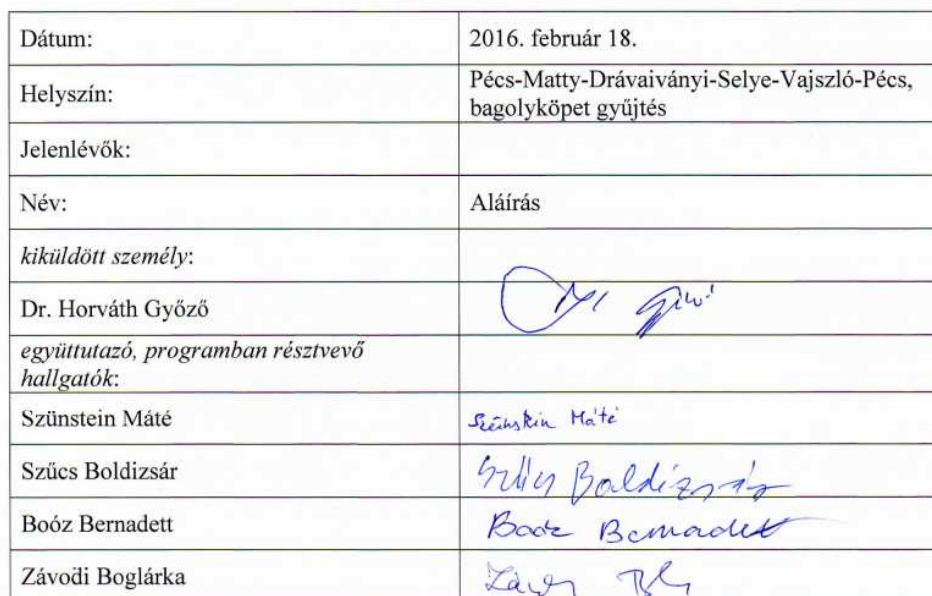 Dátum: 2016. február 18.
Helyszín: Pécs-Matty-Drávaiványi-Selye-Vajszló-Pécs,
bagolyköpet gyűjtés
Jelenlévők:
Név: Aláírás
kiküldött személy:
Dr. Horváth Győző
együttutazó, programban résztvevő
hallgatók:
Szünstein Máté Szünstein Máté
Szűcs Boldizsár Szűcs Boldizsár
Boóz Bernadett Boóz Bernadett
Závodi Boglárka